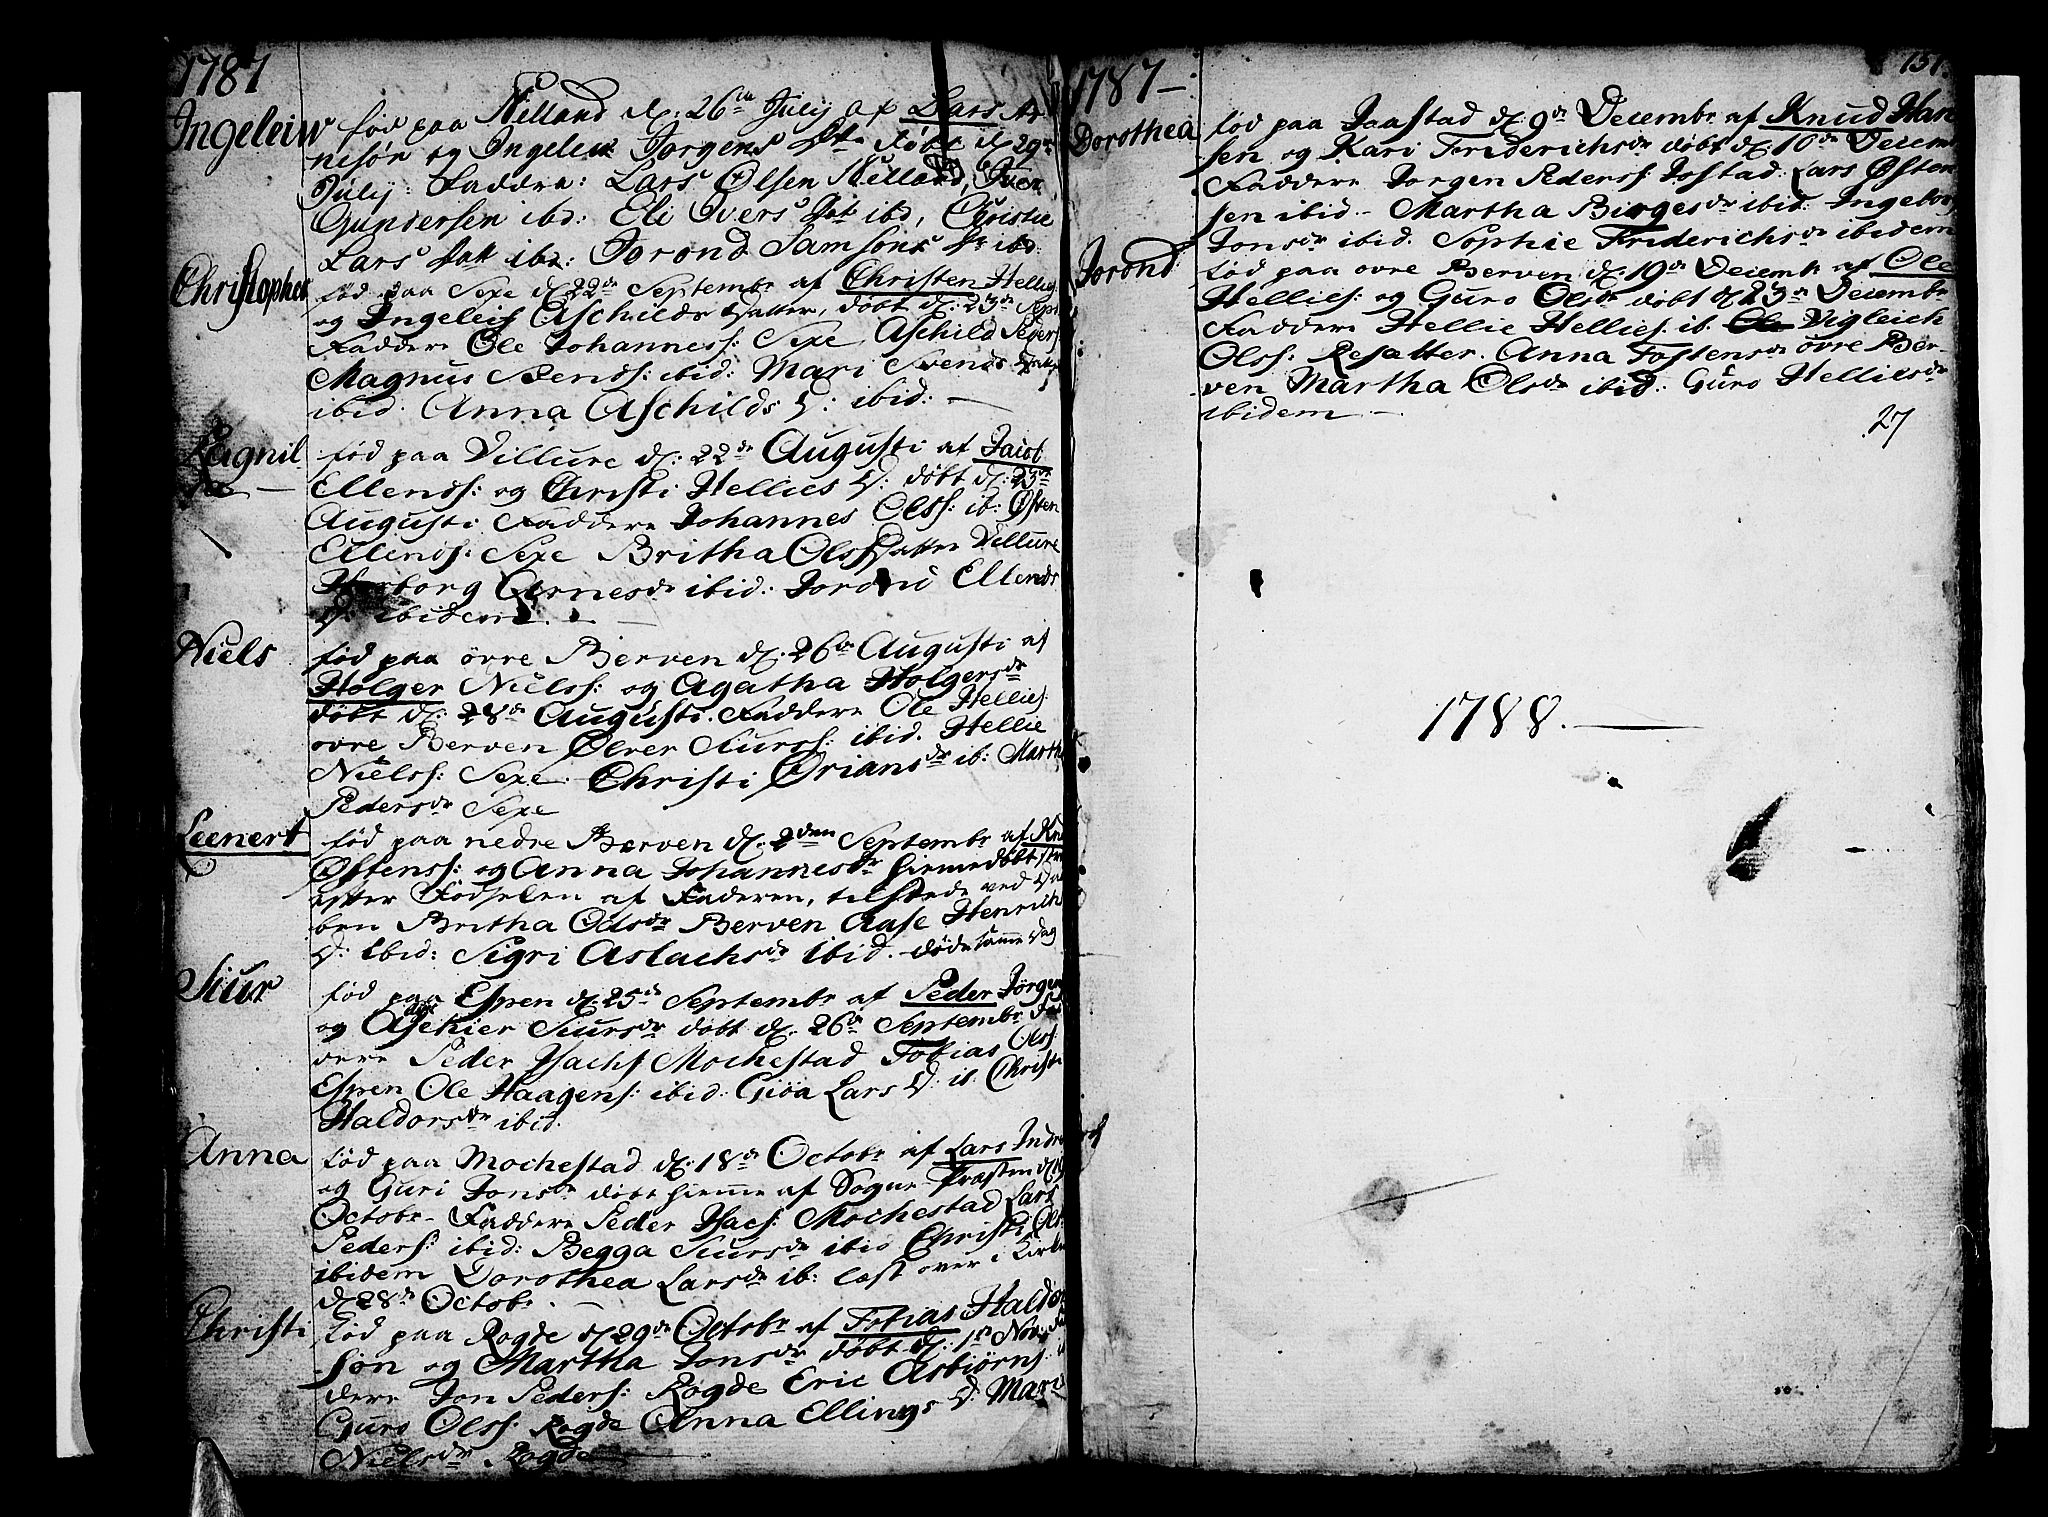 1787
Ingeleiw fød paa Nilland d: 26de Julij af Lars Ar
nesøn og Ingeleiv Jørgens Dtr døbt d 29de
Julij: Faddere: Lars Olsen Nilland, Iver
Gundersen ibd: Eli Ivers Datt ibd, Christie
Lars Datt ibd: Jorond Samsons Dr ibd:
Christopher fød paa Sexe d 22de Septembr af Christen Hellies:
og Ingeleif Aschilds Datter, døbt d: 23de Sept
Faddere Ole Johanness: Sexe Aschild Peders:
Magnus Svends: ibid: Mari Svends Datter
ibid. Anna Aschilds D: ibid: —
Ragnil fød paa Villure d: 22de Augusti af Jacob
Ellends: og Christi Hellies D: døbt d: 23de
Augusti Faddere Johannes Olss: ib: Østen
Ellends: Sexe Britha Olss Datter Villure
Herborg Arnesdr ibid: Jorond Ellends
D: ibidem. —
Niels fød paa øvre Berven d. 26de Augusti af
Holger Nielss: og Agatha Holgersdr
døbt d: 28de Augusti. Faddere Ole Hellies:
øvre Berven Ølver Siurss: ibid. Hellie
Nielss: Sexe. Christi Ørians dr ib: Martha
Pedersdr Sexe
Leenert fød paa nedre Berven d. 2den Septembr af Knu
Østenss: og Anna Johannesdr hiemedøbt
efter Fødselen af Faderen, tilstede ved Da
ben Britha Odsdr Berven Aase Henrichs
D: ibid: Sigri Aslachsdr ibid. døde samme Dag
Siur fød paa Espen d. 25de Septembr af Peder Jørgens
og Aschier Siursdr døbt d. 26de Septembr Fad
dere Peder Isachs Mochestad Tobias Olss
Espen Ole Haagens: ibid: Giøa Lars D: ib. Christi
Haldorsdr ibid.
Anna fød paa Mochestad d: 18de Octobr af Lars Indre
og Guri Jonsdr døbt hiemme af Sogne Præsten d 19
Octobr. Faddere Peder Isacs: Mochestad Lars
Peders: ibid: Begga Siursdr ibid Christi Ols
ibidem Dorothea Larsdr ib: læst over i Kirken
d. 28de Octobr. —
Christi fød paa Rogde d 29de Octobr af Tobias Haldor
søn og Martha Jonsdr døbt d. 1te Nov: Fad
dere Jon Peders: Rogde Eric Asbiørns
Guro Olss: Rogde Anna Ellings D: Mari
Nielsdr Rogde
151
1787 —
Dorothea fød paa Jaastad d 9de Decembr af Knud Han
sen og Kari Friderichsdr døbt d: 10de Decem
Faddere Jørgen Pederss: Jostad: Lars Østen
sen ibid - Martha Birgesdr ibid: Ingeborg
Jonsdr ibid. Sophie Friderichsdr ibidem
Jorond fød paa øvre Berven d. 19de Decemb af Ole
Hellies: og Guro Olsdr døbt d 23de Decembr
Faddere Hellie Hellies: ib. Ole Vigleich
Olss: Resatter. Anna Tostensdr øvre Ber-
ven Martha Olsdr ibid: Guro Helliesdr
ibidem —
27
1788. —